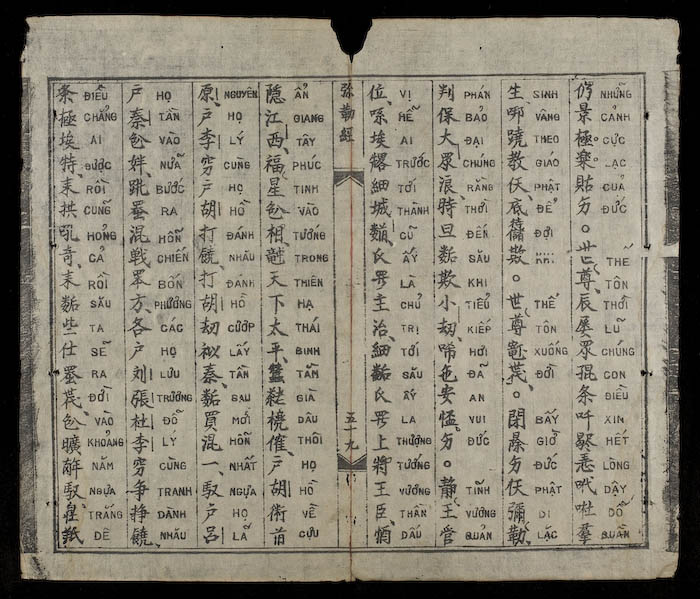 仍景極樂貼。世尊辰屡眾琨条吀歇悉吪羣
NHỮNG CẢNH CỰC LẠC CUẢ ĐỨC THẾ TÔN THỜI LŨ CHÚNG CON ĐIỀU XIN HẾT LÒNG DẬY DỖ QUẦN
生哪蹺教伏底欺。世尊。閉暴伏彌勒
SINH VÂNG THEO GIAO PHẬT ĐỂ ĐỢI KHI THẾ TÔN XUỐNG ĐỜI BẤY GIỜ ĐỨC PHẬT DI LẶC
判保大眾浪時旦欺小刼唏色安。靜王管
PHÁN BẢO ĐẠI CHÚNG RẰNG THỜI ĐẾN SÂU KHI TIỂU KIẾP HƠI ĐÃ AN VUI ĐỨC TĨNH VƯƠNG QUẢN
位埃細城氏主治細氏上將王臣
VỊ HỄ AI TRƯỚC TỚI THÀNH CŨ ẤY LÀ CHỦ TRỊ TỚI SÂU ẤY LA THƯỢNG TƯỚNG VƯƠNG THẦN DẤU
弥勒經
五十九
隐江西福星相天下太平橈催户胡術首
ẨN GIANG TÂY PHÚC TINH VÀO TƯỚNG TRONG THIÊN HẠ THÁI BINH TẰM GIÀ DÂU THÔI HỌ HỒ VỀ CỰU
原户李穷户胡打饒打胡刼秦買混一馭户呂
NGUYÊN HỌ LÝ CÙNG HỌ HỒ ĐÁNH NHÂU ĐÁNH HỒ CƯỚP LẤY TẦN SAU MỚI HỖN NHẤT NGỰA HỌ LÃ
户秦姅混戰方各户刘張杜李穷争挣饒
HỌ TẦN VÀO NỬÃ BƯỚC RA HỖN CHIẾN BỐN PHƯƠNG CÁC HỌ LƯU TRƯƠNG ĐỖ LÝ CÙNG TRANH DÀNH NHÂU
条極埃特耒拱吼奇耒些仕曠馭紙
ĐIỀU CHẲNG AI ĐƯỢC RỒI CUNG HỎNG CẢ RỒI SÂU TA SẼ RA ĐỜI VÀO KHOẢNG NĂM NGỰA TRẮNG DÊ